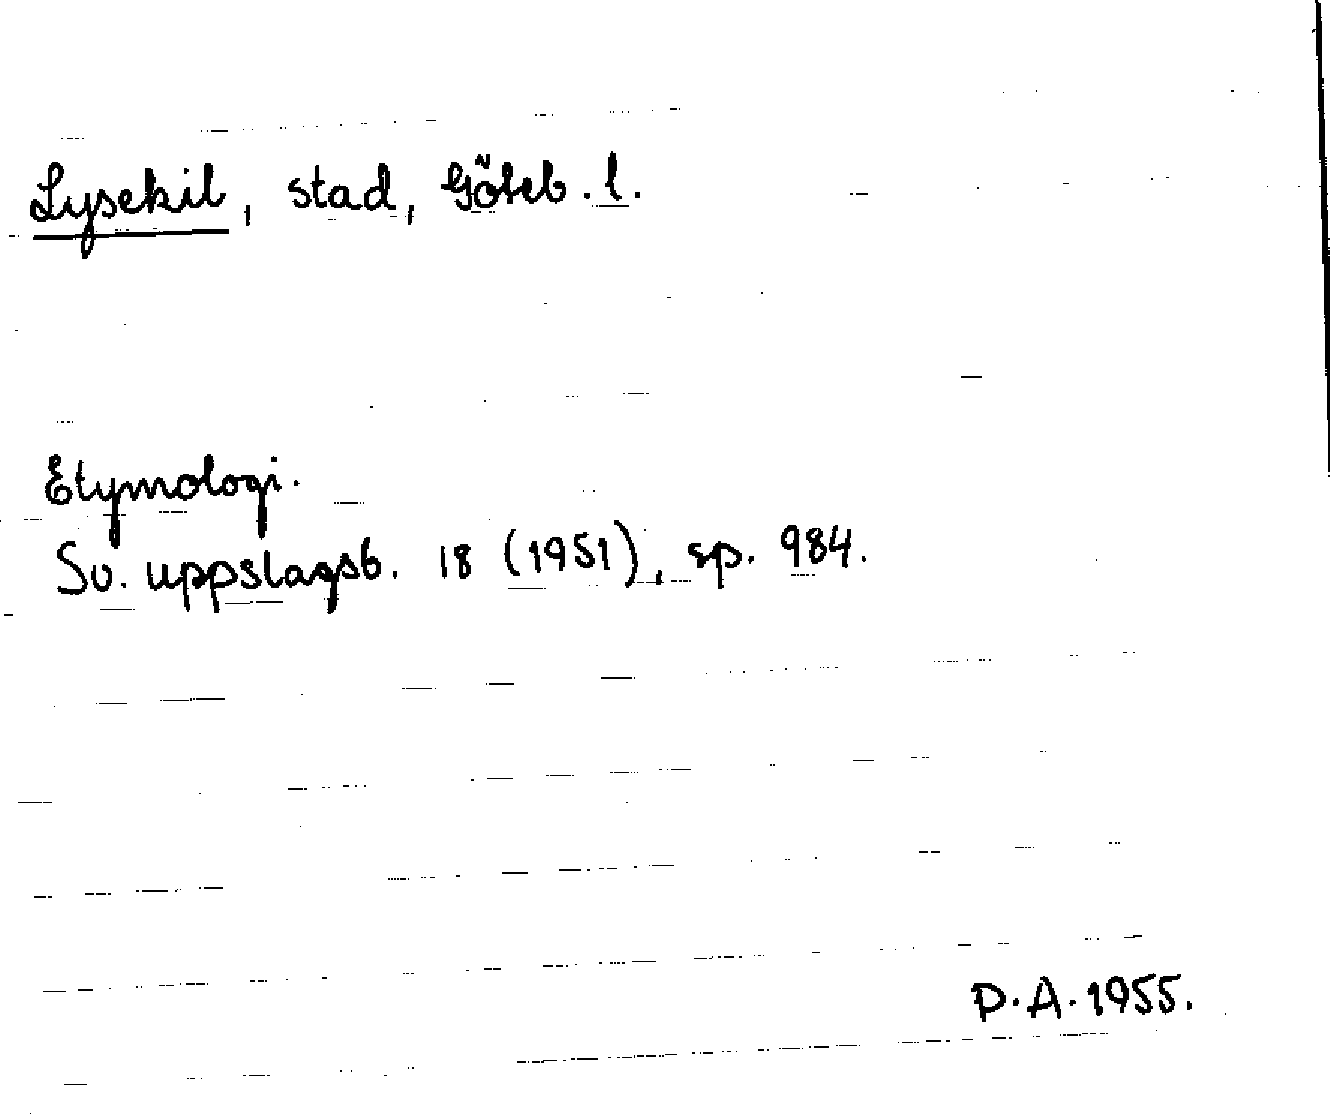 Lysekil, stad, Göteb. l.
Etymologi.
Sv. uppslagsb. 18 (1951), sp. 984.
D.A. 1955.